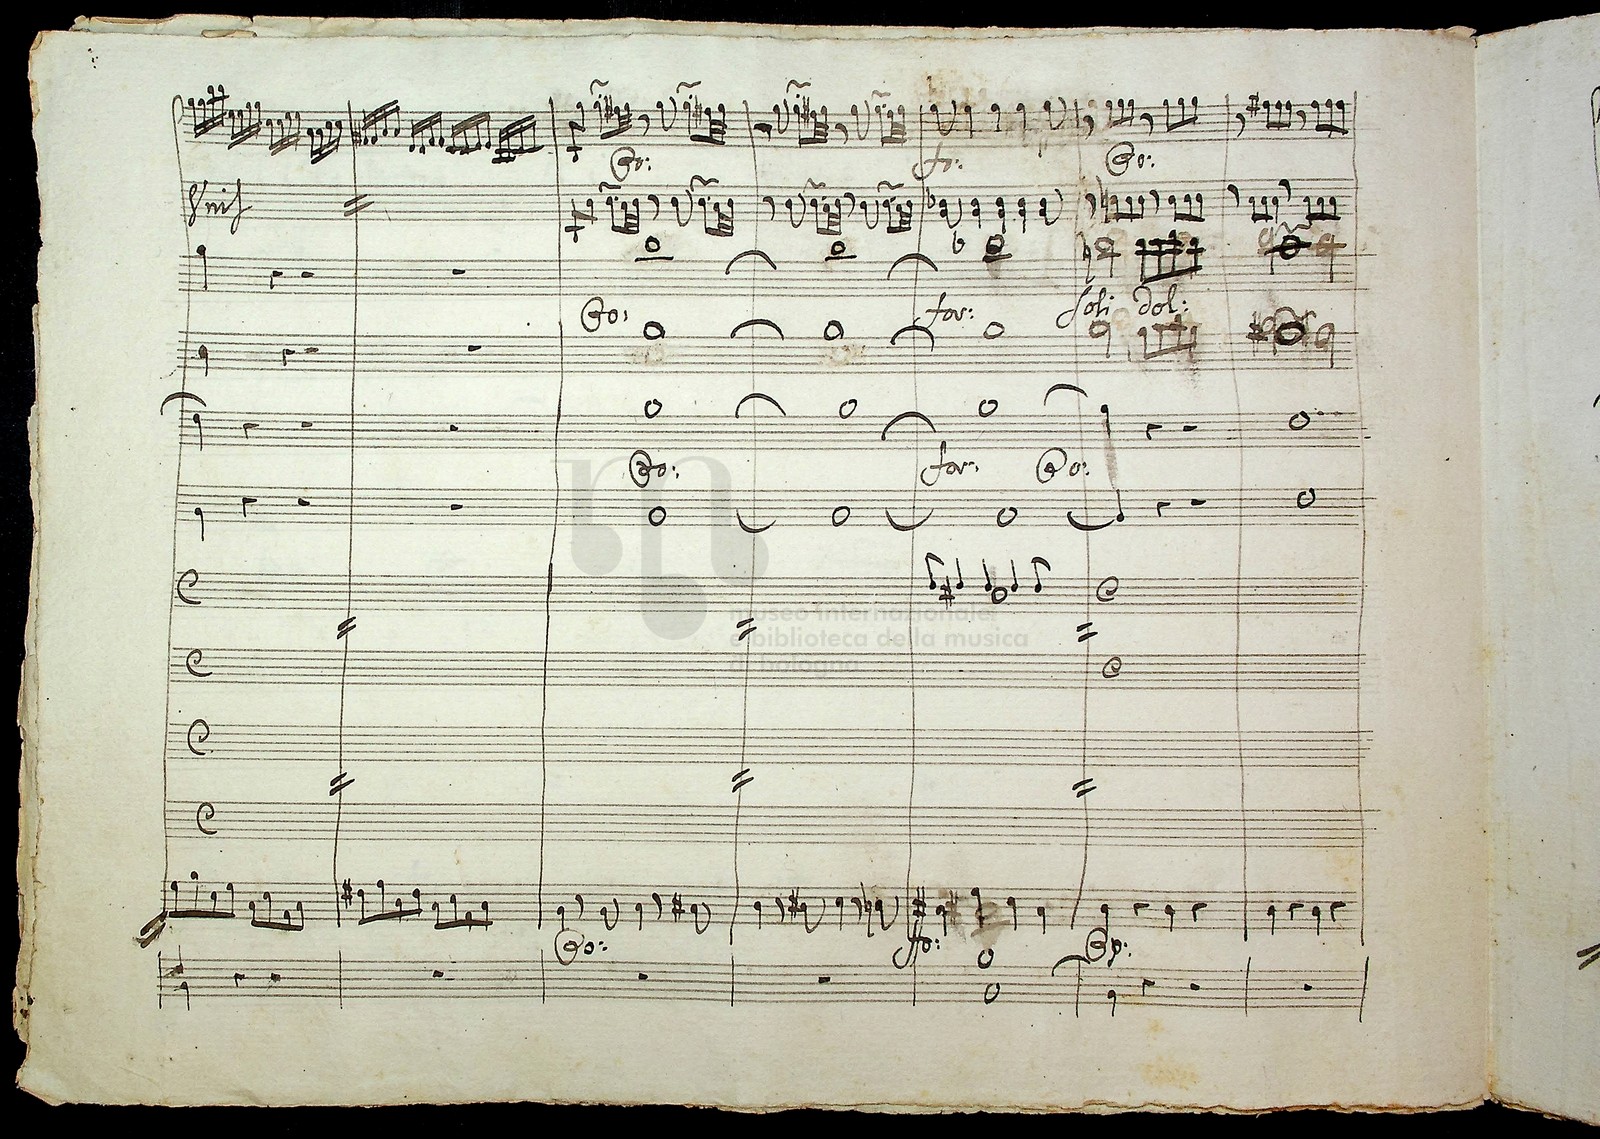 Po: fo: Po:
Unis
Po: for: Soli dol:
Po: for: Po:
museo internazionale
e biblioteca della musica
di bologna
Po: fo: Po: